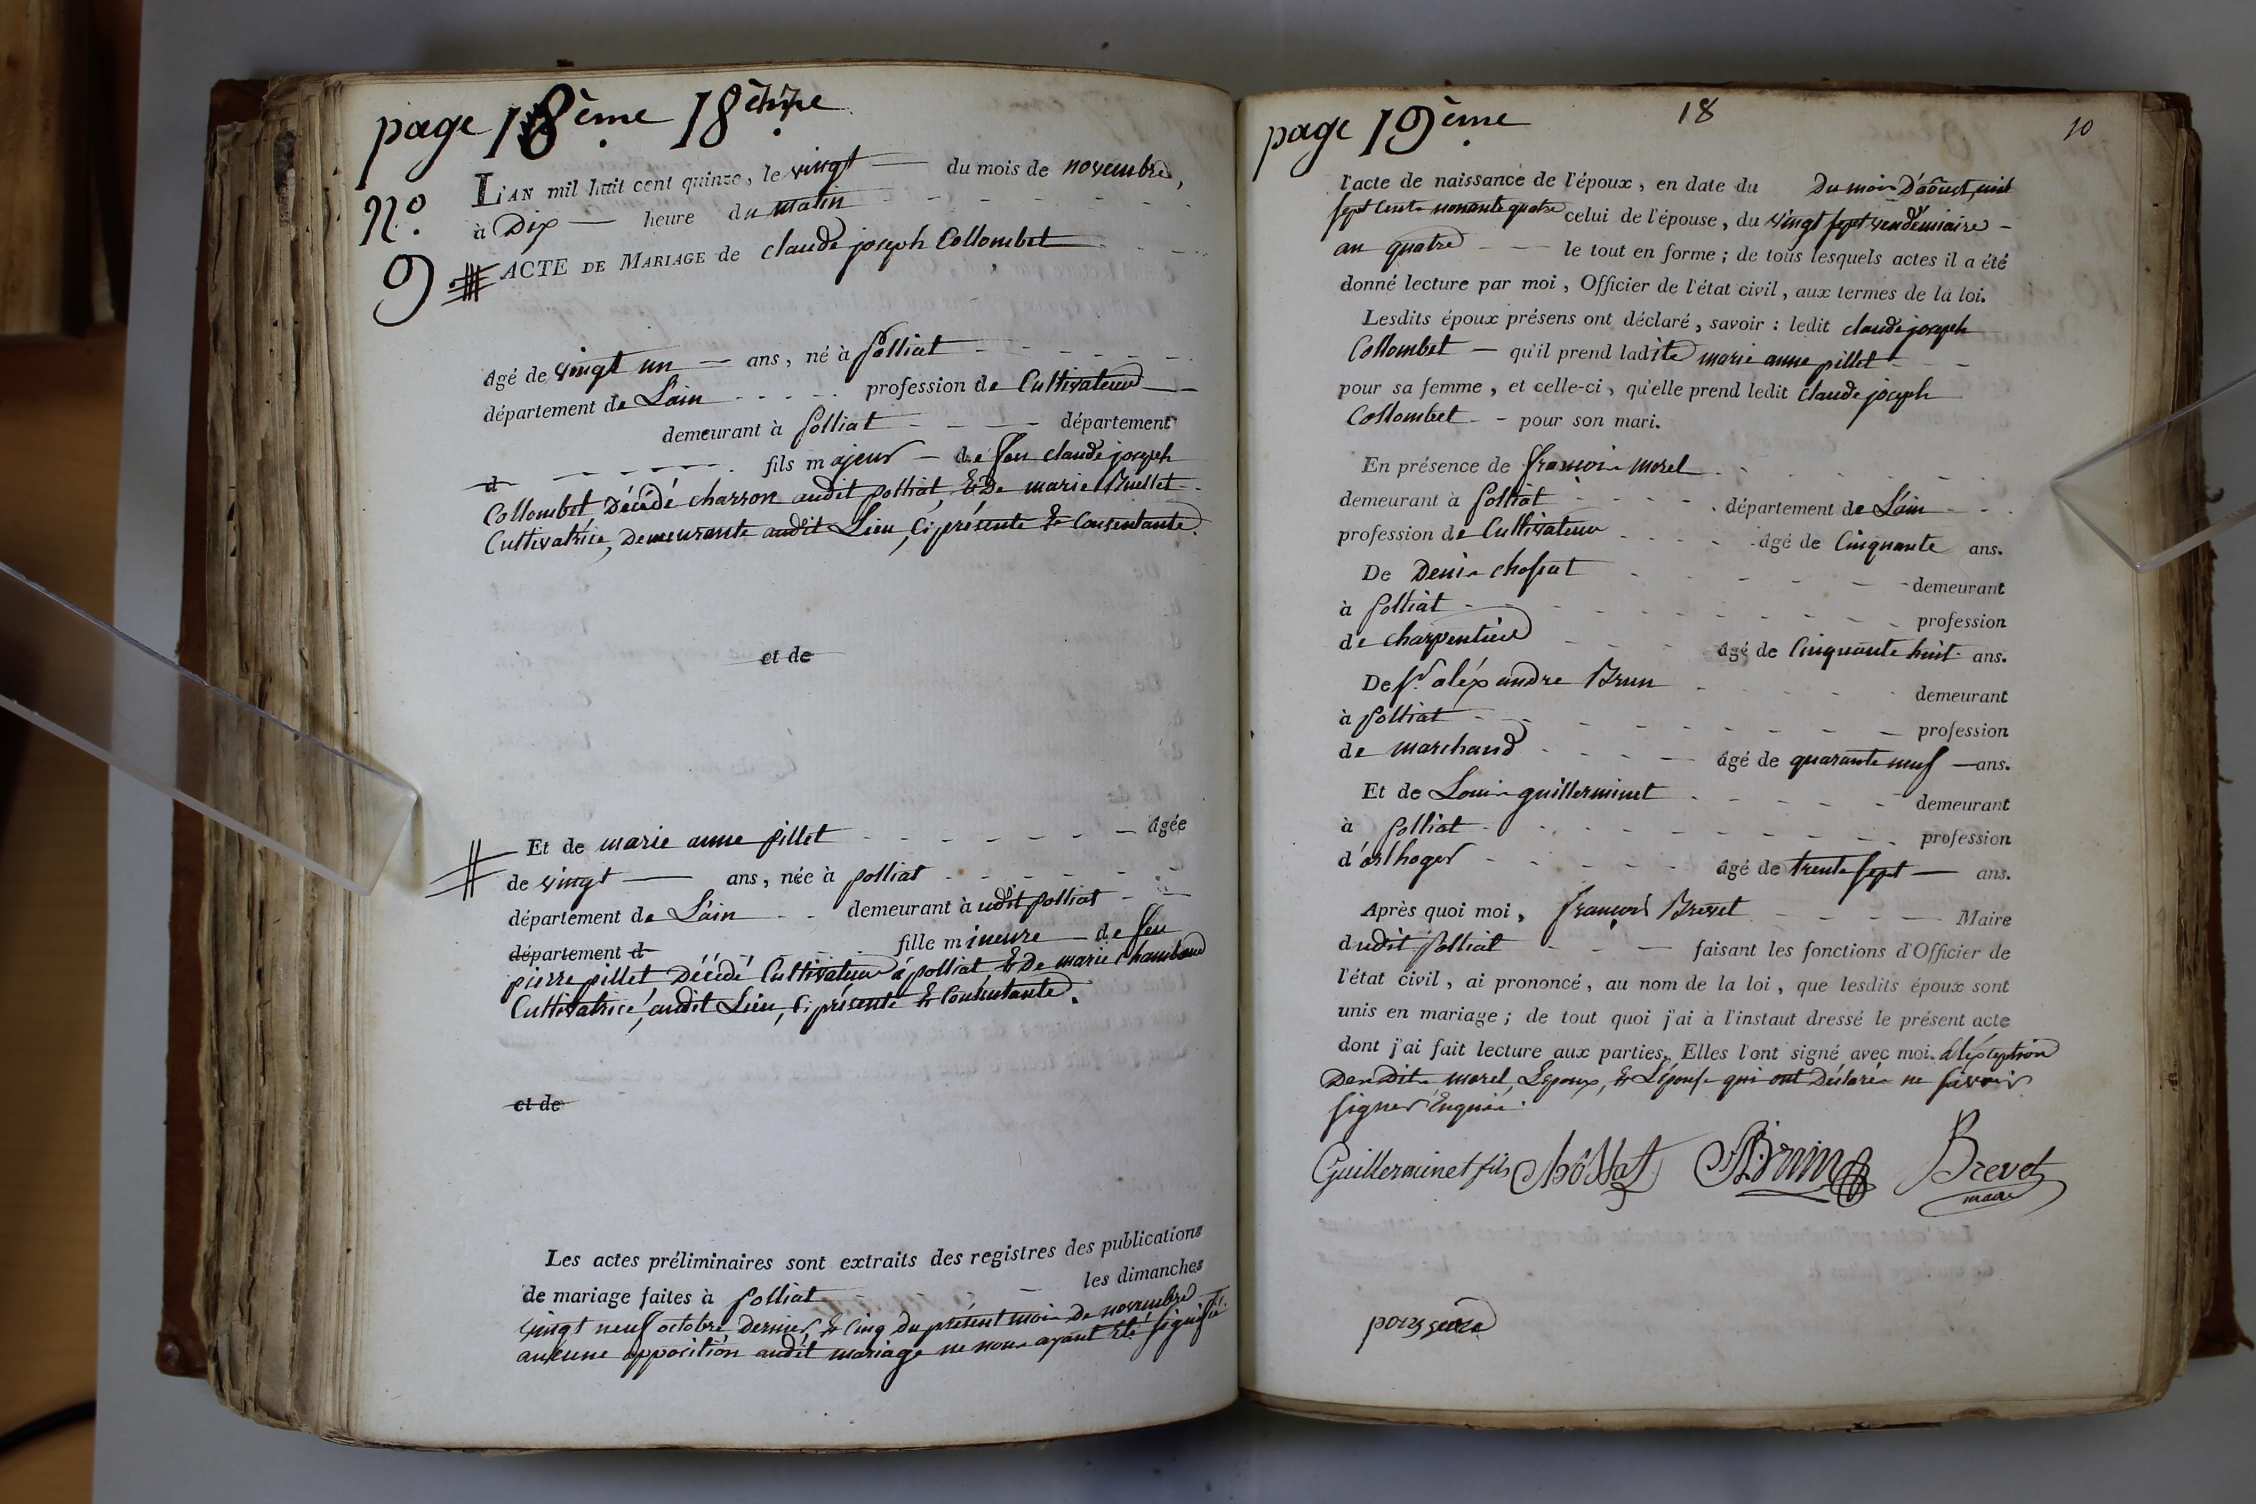 page 18ème 18ème
L'AN mil huit cent quinze, le vingt du mois de novembre,
N.º à Dix heure du matin
9 ACTE DE MARIAGE de claude joseph Collombet
âgé de vingt un ans, né à polliat
département de L'ain profession de Cultivateur
demeurant à polliat département
d fils majeur de feu claude joseph
Collombet Décédé charron audit polliat, & De marie Buellet
Cultivatrice, Demeurante audit Lieu, Ci présente & Consentante.
et de
Et de marie anne pillet âgée
de vingt ans, née à polliat
département de L'ain demeurant audit polliat
département d fille mineure de feu
pierre pillet Décédé Cultivateur à polliat & De marie Chambard
Cultivatrice, audit Lieu, Ci présente & Consentante.
et de
Les actes préliminaires sont extraits des registres des publications
de mariage faites à polliat les dimanches
vingt neuf octobre Dernier & Cinq Du présent mois De novembre
aucune opposition audit mariage ne nous ayant été signifié
page 19ème 18 10
l'acte de naissance de l'époux, en date du Du mois D'août, mil
sept Cent nonante quatre celui de l'épouse, du vingt sept vendémiaire
an quatre le tout en forme ; de tous lesquels actes il a été
donné lecture par moi, Officier de l'état civil, aux termes de la loi.
Lesdits époux présens ont déclaré, savoir : ledit claude joseph
Collombet qu'il prend ladite marie anne pillet
pour sa femme, et celle-ci, qu'elle prend ledit claude joseph
Collombet pour son mari.
En présence de francois morel
demeurant à polliat département de L'ain
profession de Cultivateur âgé de Cinquante ans.
De Denis chossat demeurant
à polliat profession
de charpentier âgé de Cinquante huit ans.
De Sr. aléxandre Brun demeurant
à polliat profession
de marchand âgé de quarante neuf ans.
Et de Louis guillerminet demeurant
à polliat profession
d'orlhoger âgé de trente sept ans.
Après quoi moi, françois Brevet Maire
dudit polliat faisant les fonctions d'Officier de
l'état civil, ai prononcé, au nom de la loi, que lesdits époux sont
unis en mariage ; de tout quoi j'ai à l'instant dressé le présent acte
dont j'ai fait lecture aux parties. Elles l'ont signé avec moi. à léxception
Des Dits morel, L'epoux, & L'épouse qui ont Déclarés ne savoir
signer Enquis.
Guillerminet fils Chossat A Brun Brevet
maire